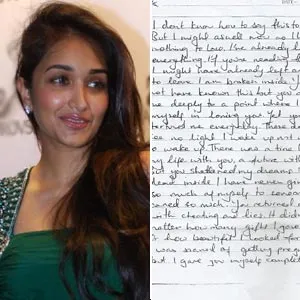 I don't know how to say this to
But I might aswell now as I
nothing to lose. I've already
everything. If you're reading
I might have already left or
to leave. I am broken inside.
not have known this but you
me deeply to a point where I
myself in loving you. Yet you
tortured me everyday. These
see no light I wake up not
to wake up. There was a time I
my life with you, a future
But you shattered my dreams
dead inside. I have never
so much of myself to someone
so much. You returned
with cheating and lies. It
matter how many gifts I gave
how beautiful I looked
was scared of getting
but I gave you myself